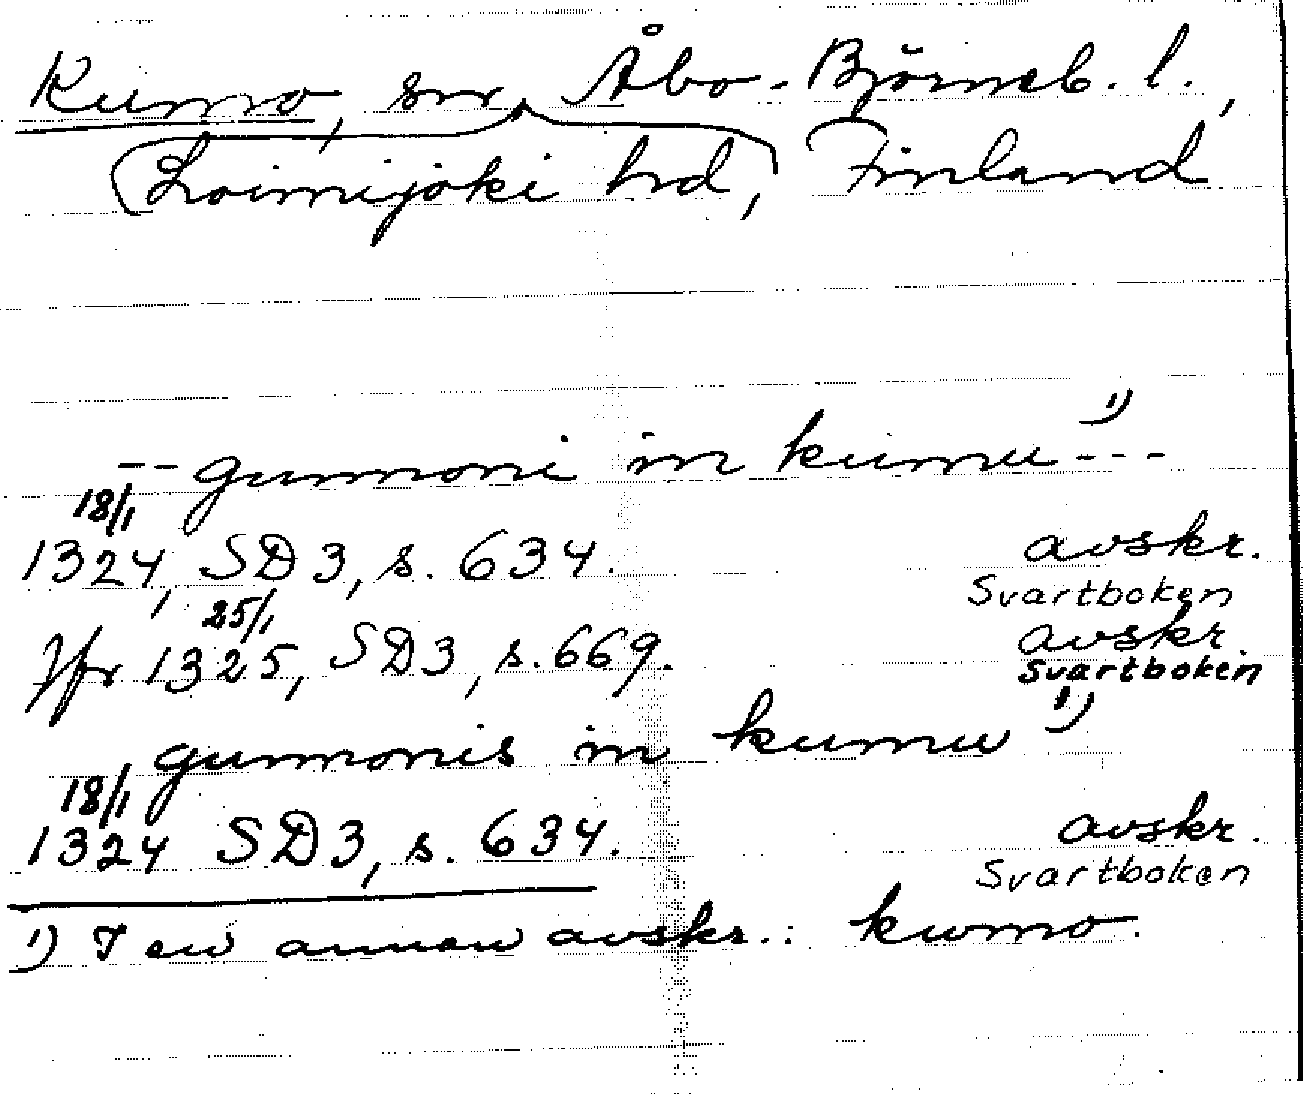 Kumo, sn, Åbo-Björneb. l.,
(Loimijoki hd, Finland
-- gumoni in kumu 1) ---
18/1
1324, SD 3, s. 634. avskr.
Svartboken
25/1 avskr.
Jfr 1325, SD 3, s. 669. Svartboken
gumonis in kumu 1)
18/1
1324 SD 3, s. 634. avskr.
Svartboken
1) I en annan avskr.: kwmo.